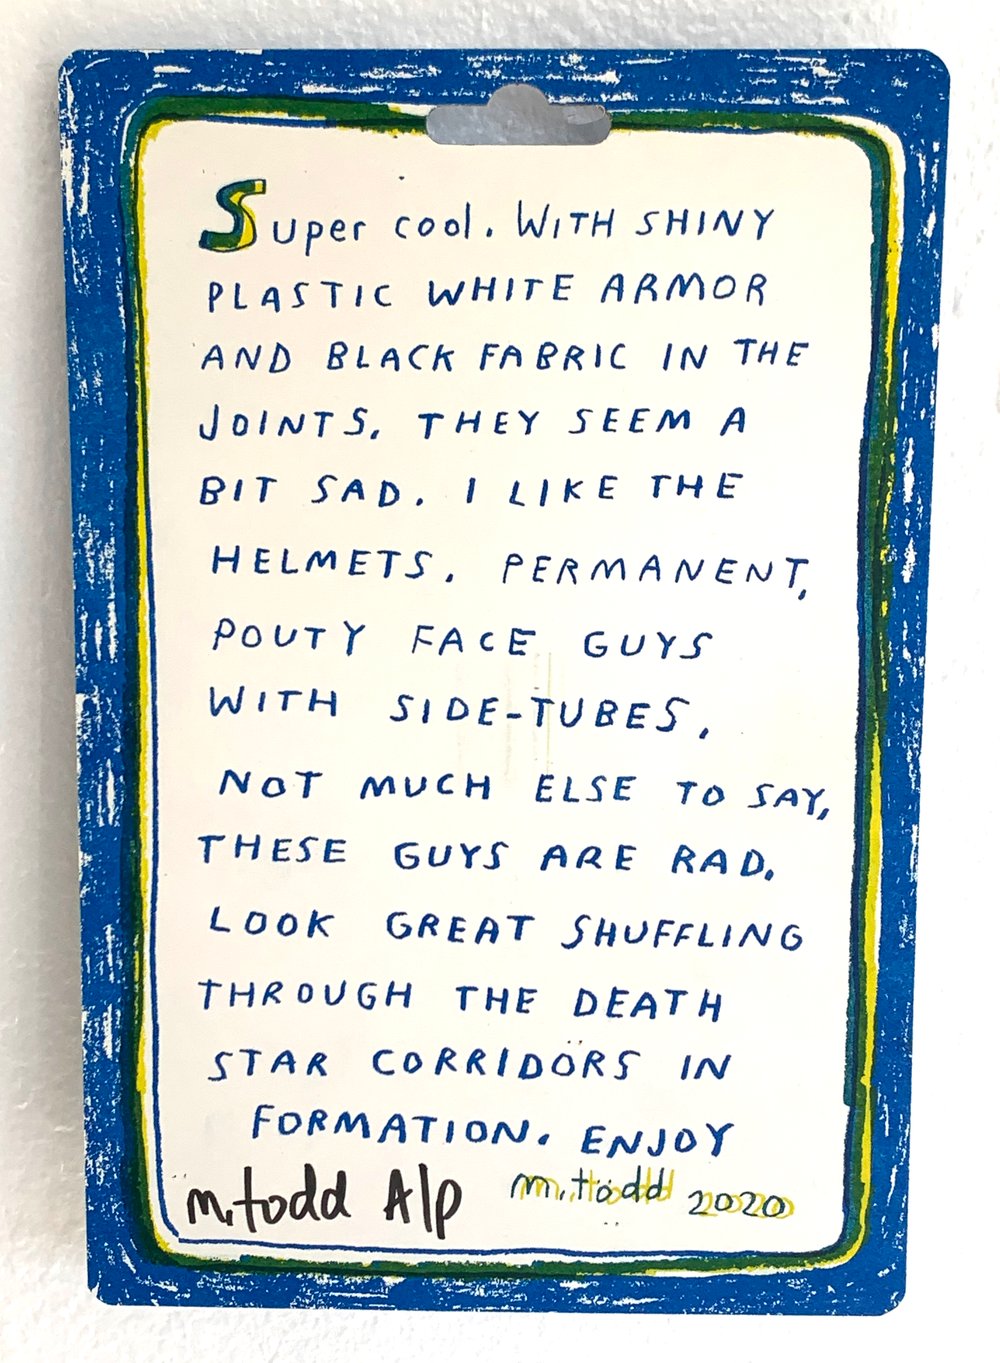 Super cool. WITH SHINY
PLASTIC WHITE ARMOR
AND BLACK FABRIC IN THE
JOINTS. THEY SEEM A
BIT SAD. I LIKE THE
HELMETS. PERMANENT,
POUTY FACE GUYS
WITH SIDE-TUBES.
NOT MUCH ELSE TO SAY,
THESE GUYS ARE RAD.
LOOK GREAT SHUFFLING
THROUGH THE DEATH
STAR CORRIDORS IN
FORMATION. ENJOY
m.todd A/p m.todd 2020